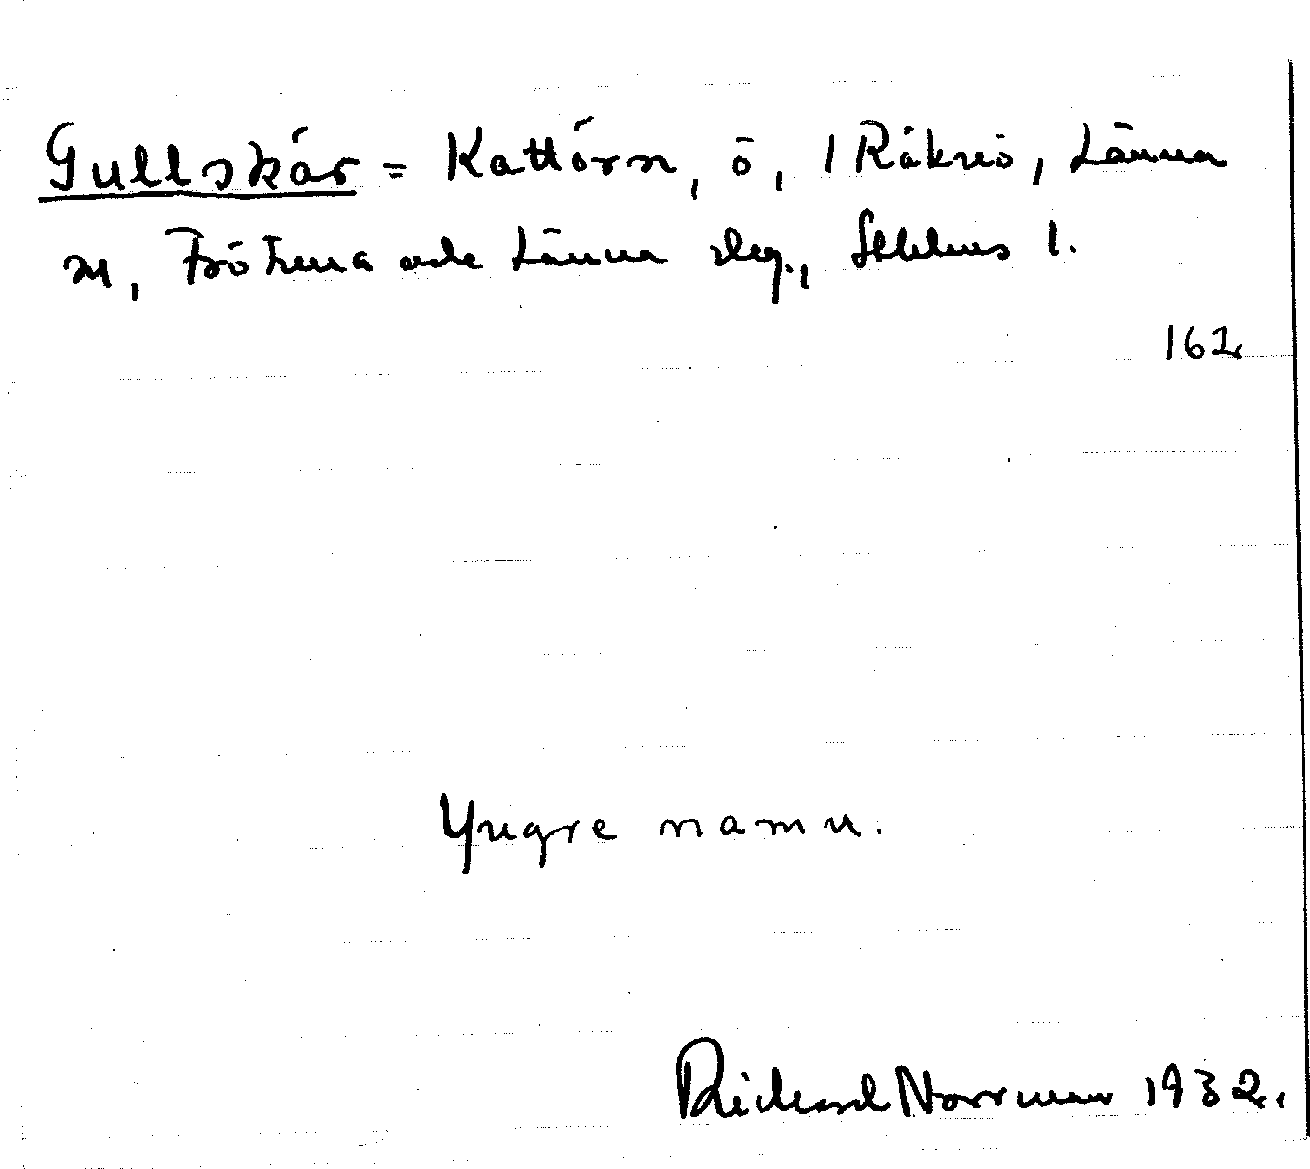 Gullskär = Kattörn, ö, 1 Räknö, Länna
sn, Frötuna och Länna slg., Sthlms l.
162
Yngre namn.
Rickard Norrman 1932.